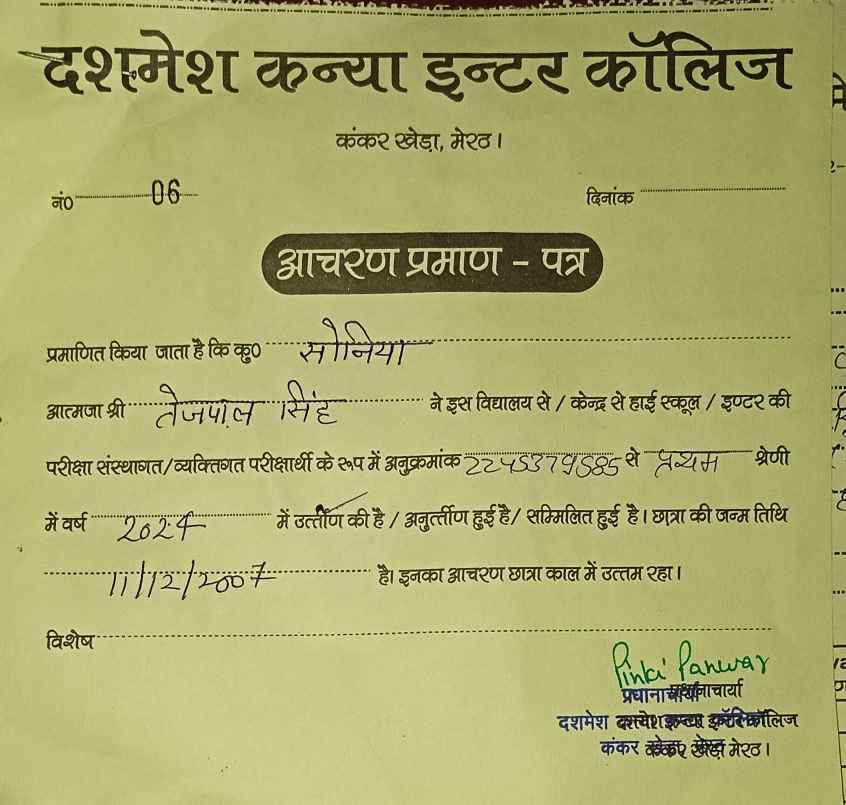 दशमेश कन्या इन्टर कॉलिज
कंकर खेड़ा, मेरठ।
नं० 06 दिनांक
आचरण प्रमाण - पत्र
प्रमाणित किया जाता है कि कु० सोनिया
आत्मजा श्री तेजपाल सिंह ने इस विद्यालय से / केन्द्र से हाई स्कूल / इण्टर की
परीक्षा संस्थागत/व्यक्तिगत परीक्षार्थी के रूप में अनुक्रमांक 22453379585 से प्रथम श्रेणी
में वर्ष 2024 में उर्त्तीण की है / अनुर्त्तीण हुई है/ सम्मिलित हुई है। छात्रा की जन्म तिथि
11/12/2007 है। इनका आचरण छात्रा काल में उत्तम रहा।
विशेष
Pinki Panwar
प्रधानाचार्या
दशमेश कन्या इन्टर कॉलिज
कंकर खेड़ा मेरठ।